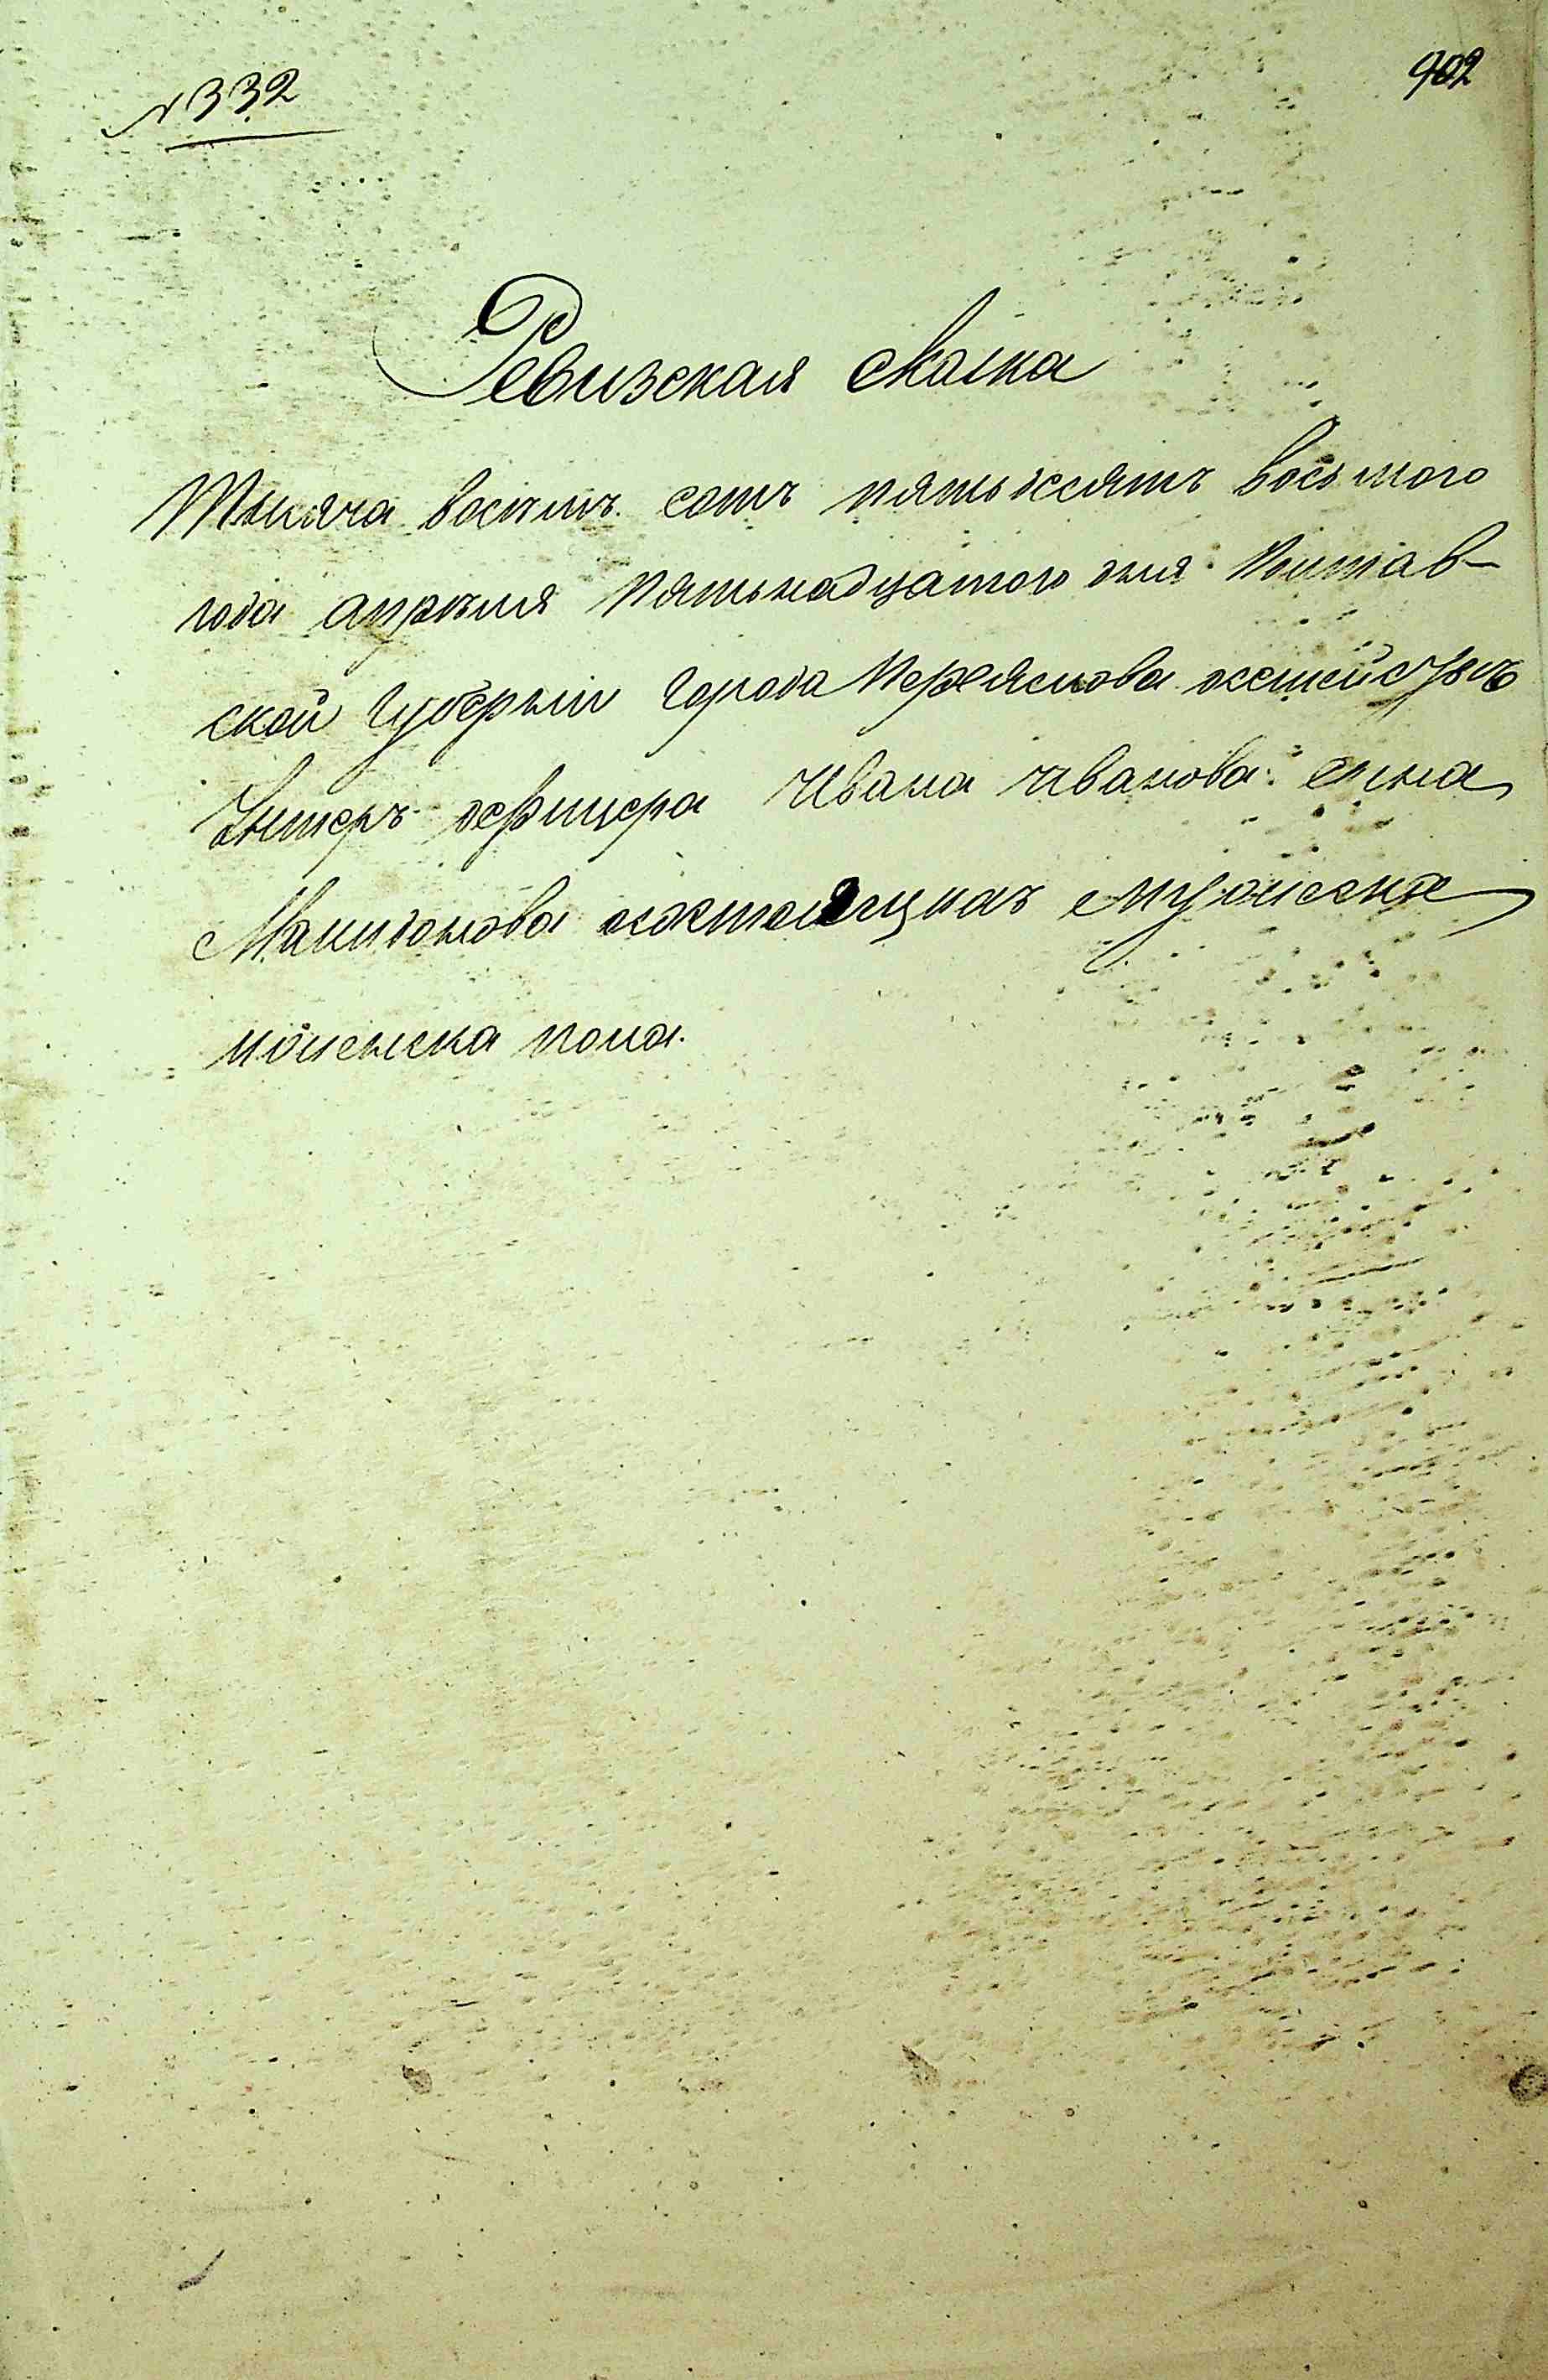 №332
902
Ревизская скаска
Тысяча восѣмъ сотъ пятьдесятъ восьмого
года апрѣля пятьнадцатого дня Полтав-
ской Губерніи города Переяслова
Унтеръ офицера Ивана Иванова сына
Макидонова состоящихъ мужеска
и женска пола.